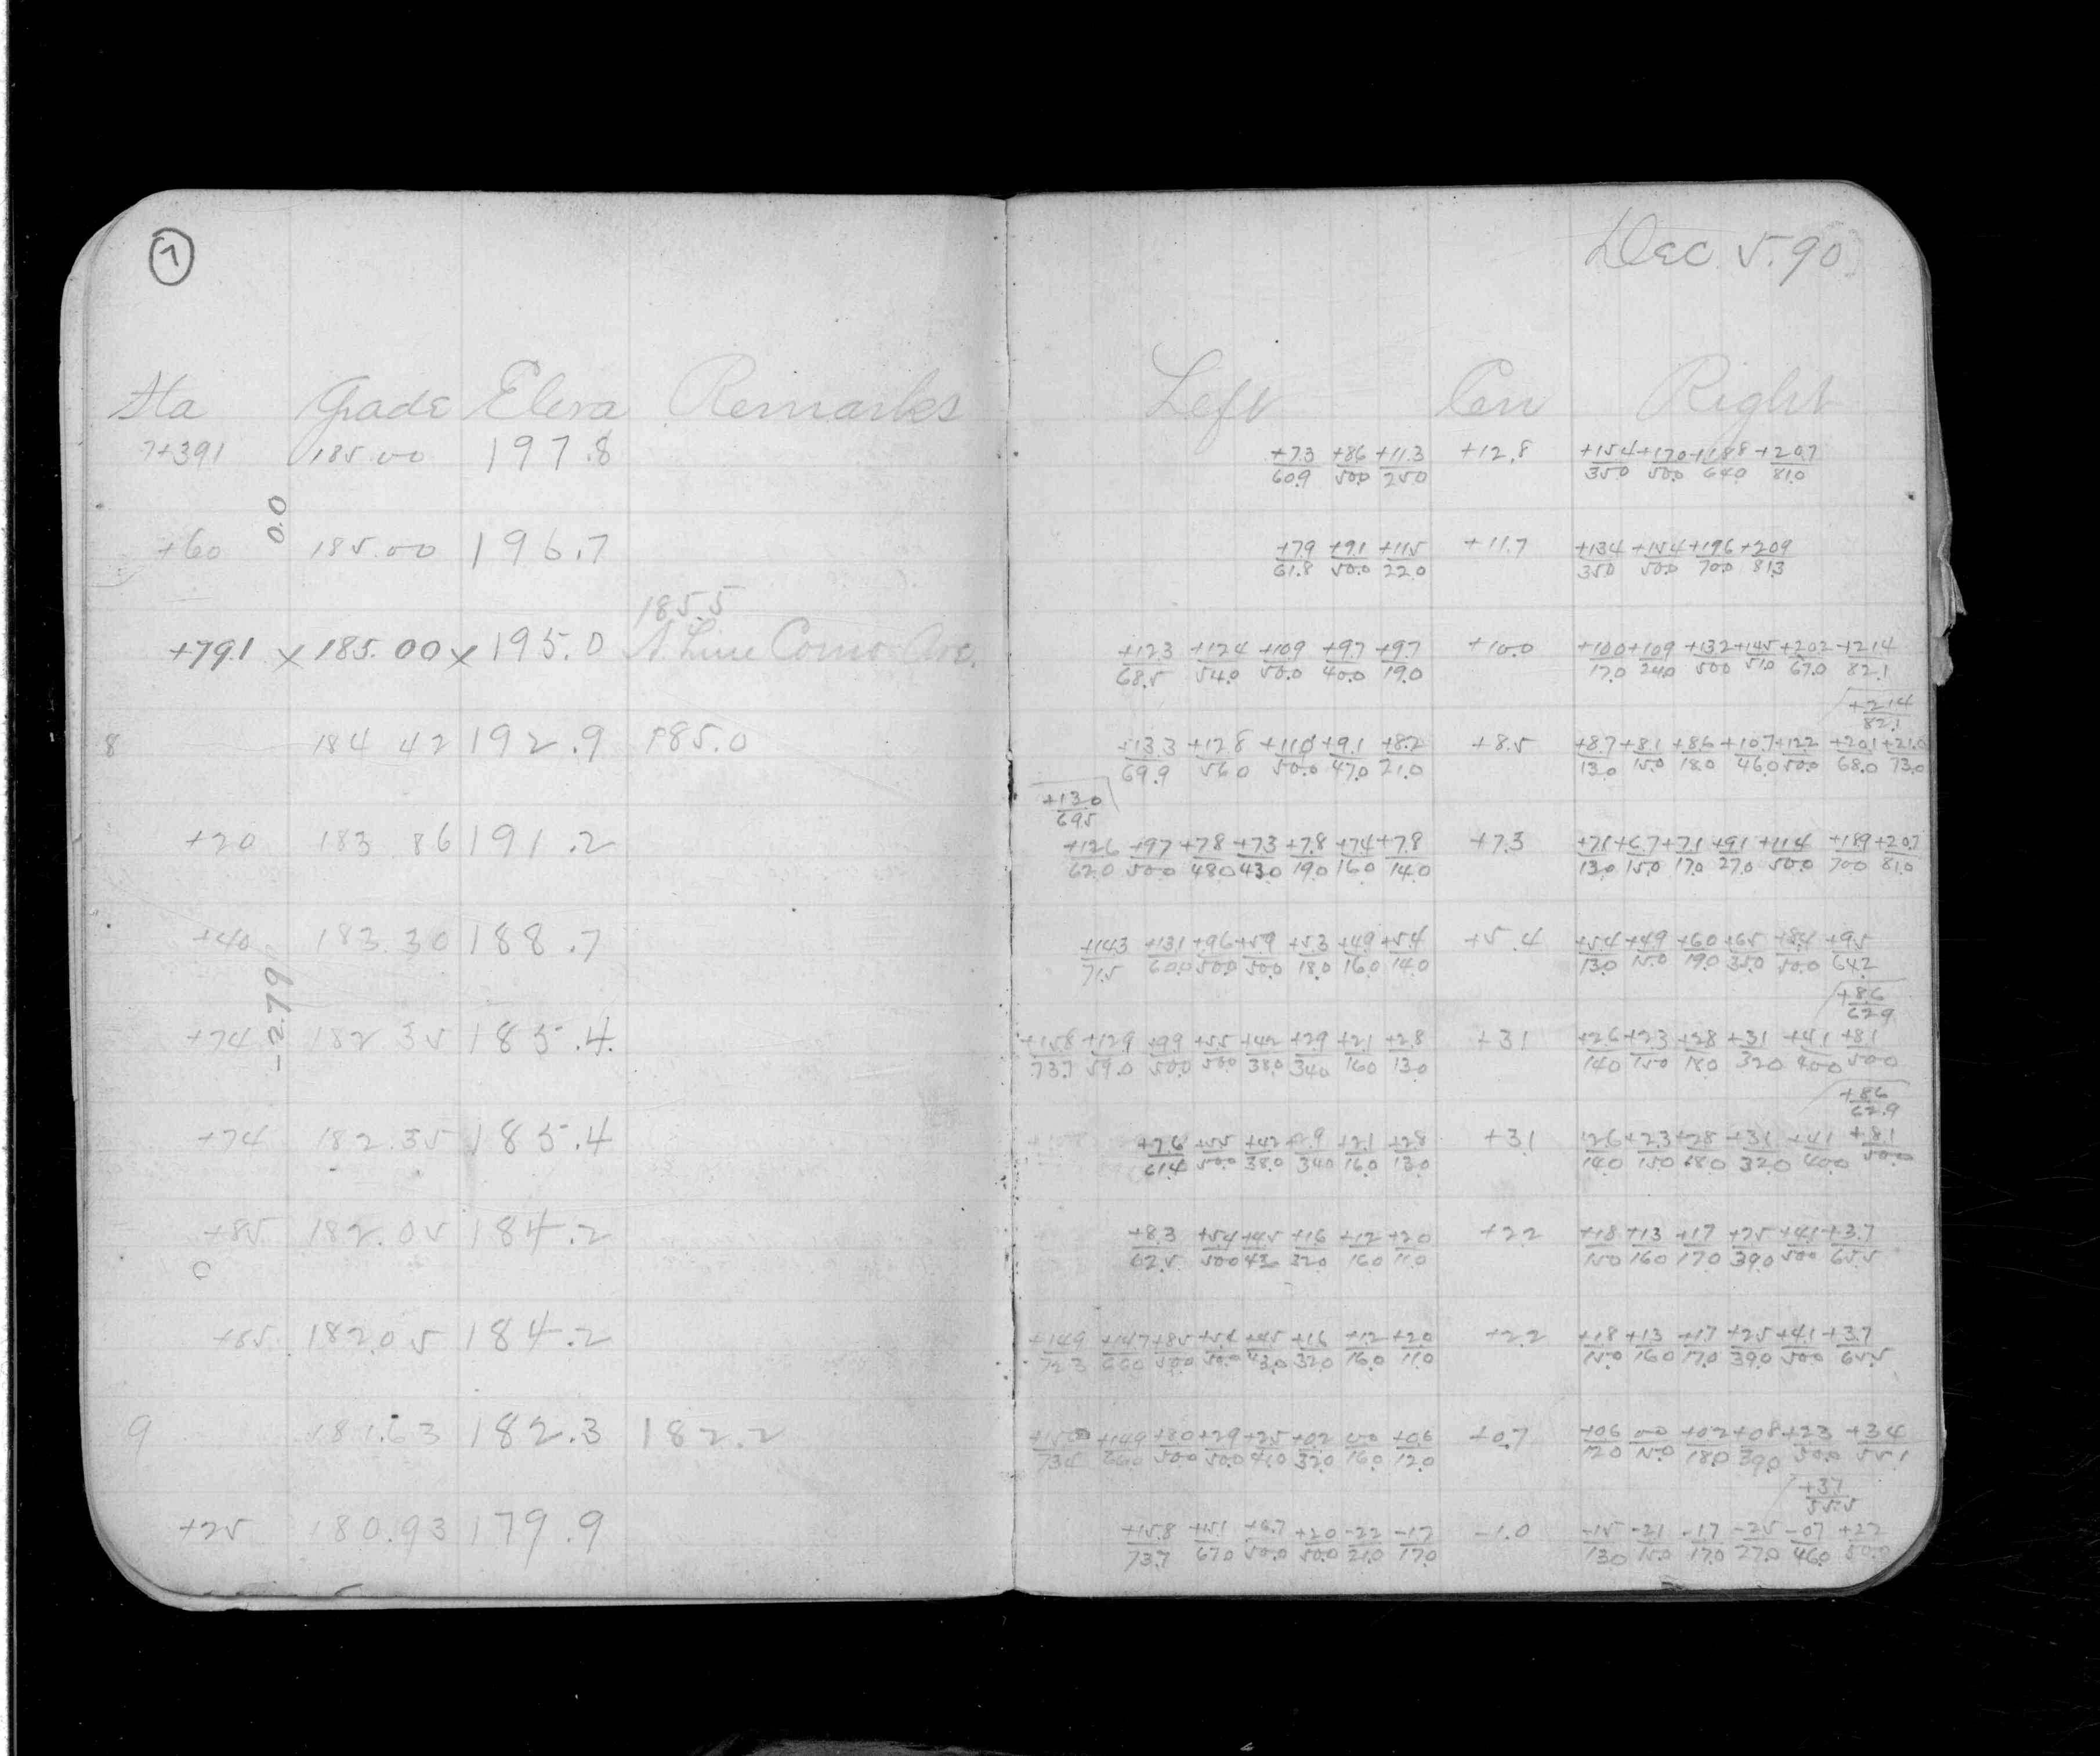 1
Dec 5. 90
Sta Grade Eleva Remarks Left Cen Right
7+391 185.00 197.8 +7.3/60.9 +86/50.0 +11.3/25.0 +12.8 +15.4/35.0 +17.0/50.0 +18.8/64.0 +20.7/81.0
0.0
+60 185.00 196.7 +7.9/61.8 +9.1/50.0 +11.5/22.0 +11.7 +13.4/35.0 +15.4/50.0 +19.6/70.0 +20.9/81.3
185.5
+79.1 x 185.00 x 195.0 N. Line Como Ave. +12.3/68.5 +12.4/54.0 +10.9/50.0 +9.7/40.0 +9.7/19.0 +10.0 +10.0/17.0 +10.9/24.0 +13.2/50.0 +14.5/51.0 +20.2/67.0 +21.4/82.1
+21.4/82.1
8 184 42 192.9 185.0 +13.3/69.9 +12.8/56.0 +11.0/50.0 +9.1/47.0 +8.2/21.0 +8.5 +8.7/13.0 +8.1/15.0 +8.6/18.0 +10.7/46.0 +12.2/50.0 +20.1/68.0 +21.0/73.0
+13.0/69.5
+20 183 86 191.2 +12.6/62.0 +9.7/50.0 +7.8/48.0 +7.3/43.0 +7.8/19.0 +7.4/16.0 +7.8/14.0 +7.3 +7.1/13.0 +6.7/15.0 +7.1/17.0 +9.1/27.0 +11.4/50.0 +18.9/70.0 +20.7/81.0
+40 183.30 188.7 +14.3/71.5 +13.1/60.0 +9.6/50.0 +5.9/50.0 +5.3/18.0 +4.9/16.0 +5.4/14.0 +5.4 +5.4/13.0 +4.9/15.0 +6.0/19.0 +6.5/35.0 +8.4/50.0 +9.5/64.2
-2.79
+8.6/62.9
+74 182.35 185.4 +15.8/73.7 +12.9/59.0 +9.9/50.0 +5.5/50.0 +4.2/38.0 +2.9/34.0 +2.1/16.0 +2.8/13.0 +3.1 +2.6/14.0 +2.3/15.0 +2.8/18.0 +3.1/32.0 +4.1/40.0 +8.1/50.0
+8.6/62.9
+74 182.35 185.4 +7.6/61.4 +5.5/50.0 +4.2/38.0 2.9/34.0 +2.1/16.0 +2.8/13.0 +3.1 +2.6/14.0 +2.3/15.0 +2.8/18.0 +3.1/32.0 +4.1/40.0 +8.1/50.0
+85 182.05 184.2 +8.3/62.5 +5.4/50.0 +4.5/43.0 +1.6/32.0 +1.2/16.0 +2.0/11.0 +2.2 +1.8/15.0 +1.3/16.0 +1.7/17.0 +2.5/39.0 +4.1/50.0 +3.7/65.5
0
+85 182.05 184.2 +14.9/72.3 +14.7/66.0 +8.5/50.0 +5.4/50.0 +4.5/43.0 +1.6/32.0 +1.2/16.0 +2.0/11.0 +2.2 +1.8/15.0 +1.3/16.0 +1.7/17.0 +2.5/39.0 +4.1/50.0 +3.7/65.5
9 181.63 182.3 182.2 +14.9/66.0 +8.0/50.0 +2.9/50.0 +2.5/41.0 +0.2/32.0 0.0/16.0 +0.6/12.0 +0.7 +0.6/12.0 0.0/15.0 +0.2/18.0 +0.8/39.0 +2.3/50.0 +3.4/55.1
+3.7/55.5
+25 180.93 179.9 +15.8/73.7 +15.1/67.0 +6.7/50.0 +2.0/50.0 -2.2/21.0 -1.7/17.0 -1.0 -1.5/13.0 -2.1/15.0 -1.7/17.0 -2.5/27.0 -0.7/46.0 +2.2/50.0